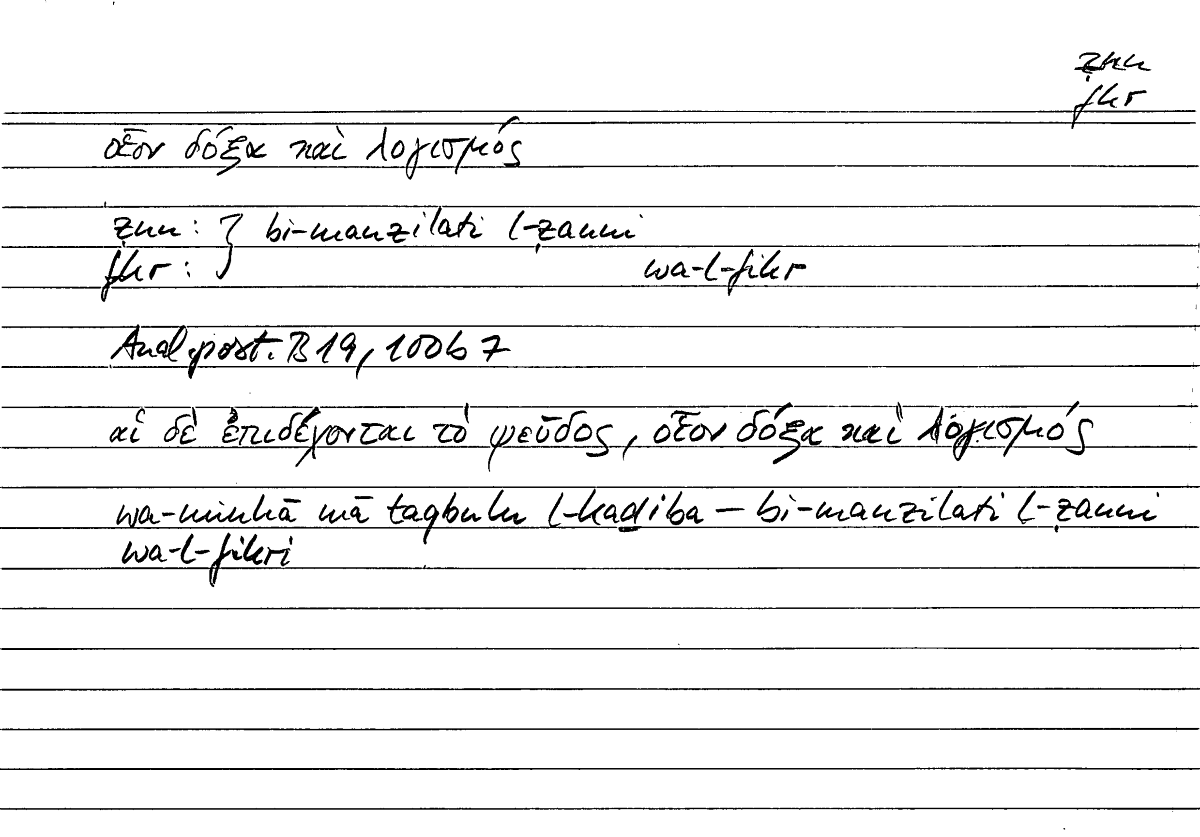 ẓnn
fkr
οἷον δόξα καὶ λογισμός
ẓnn : } bi-manzilati l-ẓanni
fkr : wa-l-fikr
Anal. post. B 19, 100b 7
αἱ δὲ ἐπιδέχονται τὸ ψεῦδος, οἷον δόξα καὶ λογισμός
wa-minhā mā taqbulu l-kaḏiba – bi-manzilati l-ẓanni
wa-l-fikri